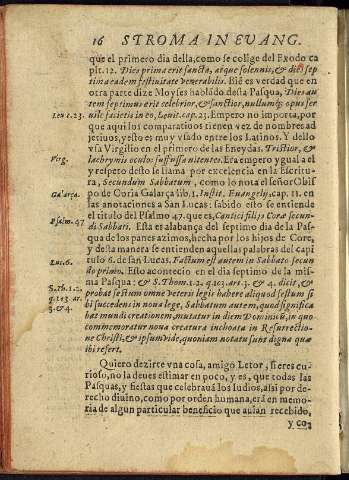 16 STROMA IN EVANG.
que el primero dia della, como se colige del Exodo ca
pit. 12. Dies prima erit sancta, atque solennis, & dies sep
tima eadem festiuitate venerabilis. Biẽ es verdad que en
otra parte dize Moyses hablãdo desta Pasqua, Dies au
tem septimus erit celebrior, & sanctior, nullumq; opus ser
Leu i. 23.
uile facietis in eo, Leuit. cap. 23. Empero no importa, por
que aqui los comparatiuos tienen vez de nombres ad
jetiuos, y esto es muy vsado entre los Latinos. Y dello
Virg.
vsa Virgilio en el primero de las Eneydas. Tristior, &
lachrymis oculos suffusa nitentes. Era empero ygual a el
y respeto desto le llama por excelencia en la Escritu-
ra, Secundum Sabbatum, como lo nota el señor Obis-
Galarça.
po de Coria Galarça lib. 1. Instit. Euangelij, cap. 11. en
las anotaciones a San Lucas: sabido esto se entiende
Psalm. 47
el titulo del Psalmo 47. que es, Cantici filijs Cora secun-
di Sabbati. Esta es alabança del septimo dia de la Pas-
qua de los panes azimos, hecha por los hijos de Core,
y desta manera se entienden aquellas palabras del capi
Luc. 6.
tulo 6. de san Lucas. Factum est autem in Sabbato secun
do primo. Esto acontecio en el dia septimo de la mis-
S. Th. 1. 2.
ma Pasqua: & S. Thom. 1. 2. q. 103. art. 3. & 4. dicit, &
q. 103 art.
probat festum omne veteris legis habere aliquod festum si
3. & 4.
bi succedens in noua lege, Sabbatum autem, quod significa
bat mundi creationem, mutatur in diem Dominicũ, in quo
commemoratur noua creatura inchoata in Resurrectio-
ne Christi, & ipsum vide, quoniam notatu sunt digna quæ
ibi refert.
Quiero dezirte vna cosa, amigo Letor, si eres cu-
rioso, no la deues estimar en poco, y es, que todas las
Pasquas, y fiestas que celebrauã los Iudios, assi por de-
recho diuino, como por orden humana, erã en memo-
ria de algun particular beneficio que auian recebido,
y co-